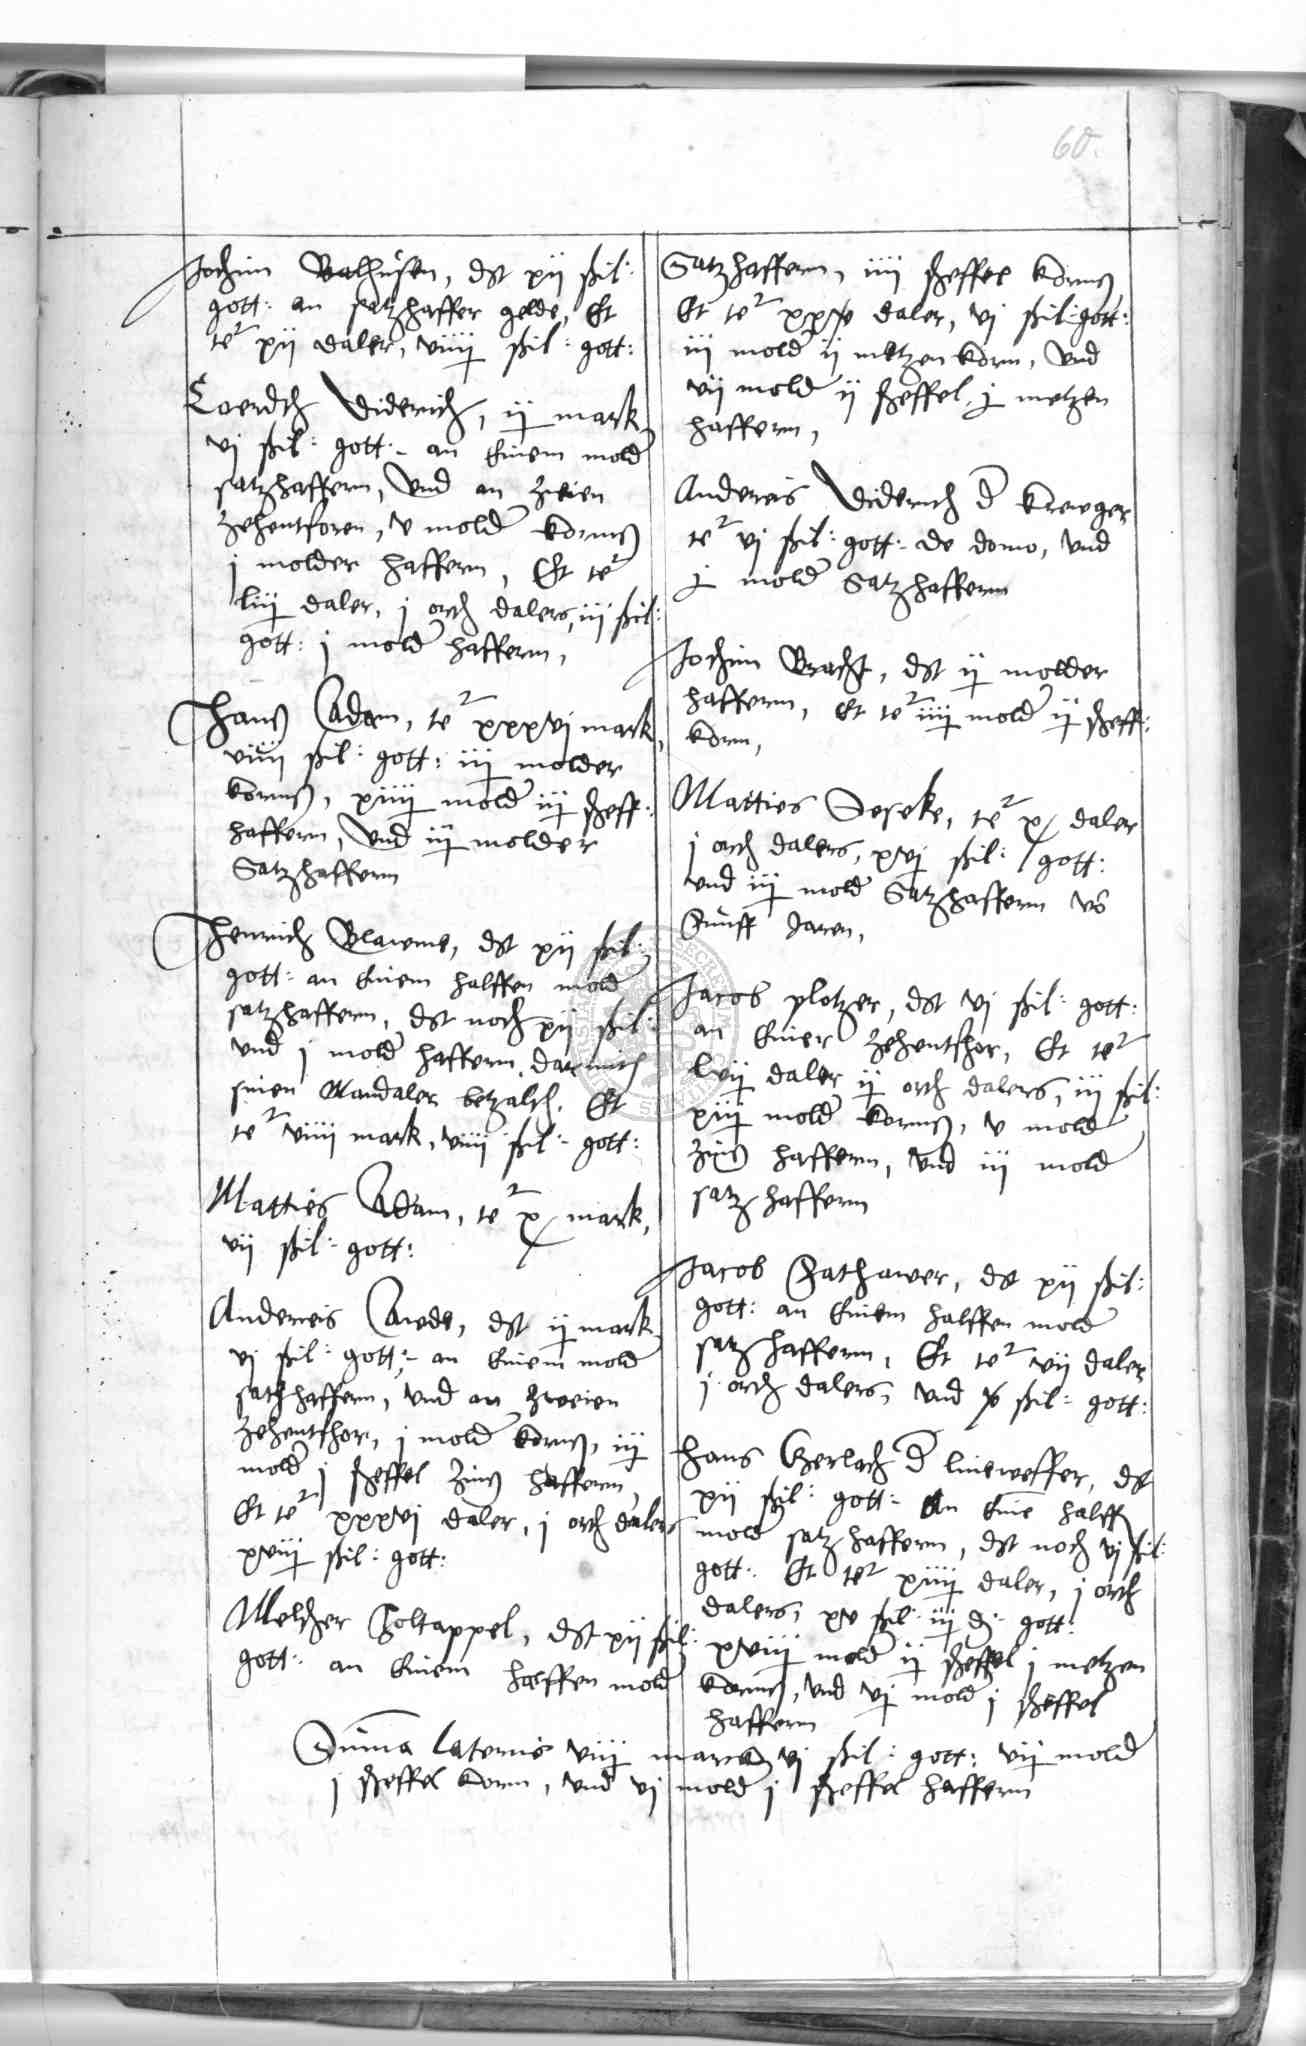 60.
Jochim Balhusen, dt xij ßil:
gott: an satzhaffer gelde, Et
te² xij daler, viiij ßil: gott:
Coerdt Diderich, ij mark
vj ßil: gott: an einem mold
satzhaffern, Vnd an zweien
Zehentforen, v mold korns
j molder haffern, Et te²
liij daler, j orth dalers, iij ßil:
gott: j mold haffern,
Hans Adam, te² xxxvj mark,
viiij ßil: gott: iij molder
korns, xiiij mold iij scheff:
haffern, Vnd iij molder
Satzhaffern
Henrich Blawme, dt xij ßil:
gott: an einem halffen mold
satzhaffern, dt noch xij ßil:
Vnd j mold haffern, darmith
sinen Mandaler betzalth. Et
te² viiij mark, viiij ßil: gott:
Matties Adam, te² x mark,
vij ßil: gott:
Andereis dt ij mark
vj ßil: gott: an einem mold
satzhaffern, Vnd an zweien
Zehentfhor, j mold korns, iij
mold j scheffel Zins haffern,
Et te² xxxvj daler, j orth dalers
xviij ßil: gott:
Melcher Holtappel, dt xij ßil:
gott: an einem halffen mold
Satzhaffern, iiij scheffel korns
Et te² daler, vj ßil: gott:
iij mold ij metzen korn, Vnd
vij mold ij scheffel j metzen
haffern,
Andereis Diderich d krewger
te² vj ßil: gott: de domo, Vnd
j mold Satzhaffern
Jochim Bracht, dt ij molder
haffern, Et te² iiij mold ij scheff:
korn,
Matties Deseke, te² x daler
j orth dalers, xvj ßil: gott:
Vnd iij mold Satzhaffern vō
Funff Jaren,
Jacob plotzer, dt vj ßil: gott:
an einer Zehentfhor, Et te²
lvij daler ij orth dalers, iij ßil:
xiij mold korns, v mold
Zins haffern, Vnd iij mold
satzhaffern
Jacob Fathawer, dt xij ßil:
gott: an einem halffen mold
satzhaffern, Et te² vij daler
j orth dalers, Vnd x ßil: gott:
Hans Gerlach d lineweffer, dt
xij ßil: gott: An eine halff
mold satzhaffern, dt noch vj ßil:
gott: Et te² xiiij daler, j orth
dalers, xv ßil: iij d: gott:
xviij mold ij scheffel j metzen
korns, Vnd vj mold j scheffel
haffern
Summa Lateris viij marck vj ßil: gott: vij mold
j scheffel korn, Vnd vj mold j scheffel haffern